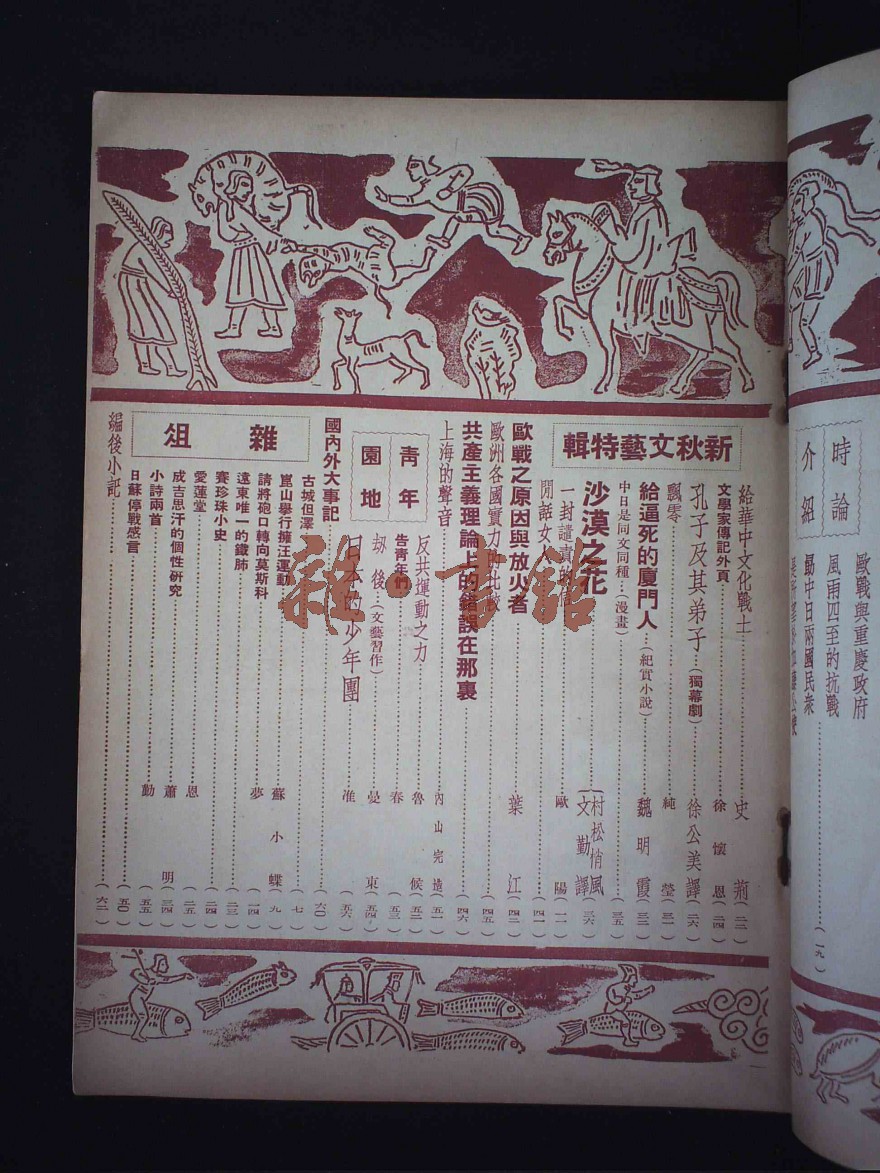 時論
介紹
歐戰與重慶政府
風雨四至的抗戰
勗中日兩國民衆 (一九)
新秋文藝特輯
給華中文化戰士 史荊 (二二)
文學家傳記外頁 徐懷恩 (二四)
孔子及其弟子 (獨幕劇) 徐公美譯 (二六)
飄零 純瑩 (三一)
給逼死的廈門人 (紀實小說) 魏明霞 (三二)
中日是同文同種 (漫畫) (三五)
沙漠之花 村松梢風 文勤譯 (三六)
一封譴責的信 歐陽 (一一)
閒話女人 (四一)
歐戰之原因與放火者 葉江 (四二)
歐洲各國實力的比較 (四五)
共產主義理論上的錯誤在那裏 (四六)
上海的聲音 內山完造 (五一)
青年
園地
反共運動之力 魯候 (五二)
告青年們 春 (五三)
劫後 (文藝習作) 曼東 (五四)
日本的少年團 准 (五六)
國內外大事記 (六〇)
雜俎
古城但澤 (七)
崑山舉行擁汪運動 蘇小蝶 (九)
請將砲口轉向莫斯科 夢 (一四)
遠東唯一的鐵肺 (二三)
賽珍珠小史 (二四)
愛蓮堂 恩 (二五)
成吉思汗的個性研究 蕭明 (三四)
小詩兩首 勳 (五五)
日蘇停戰感言 (五〇)
編後小記 (六二)
雜·書館